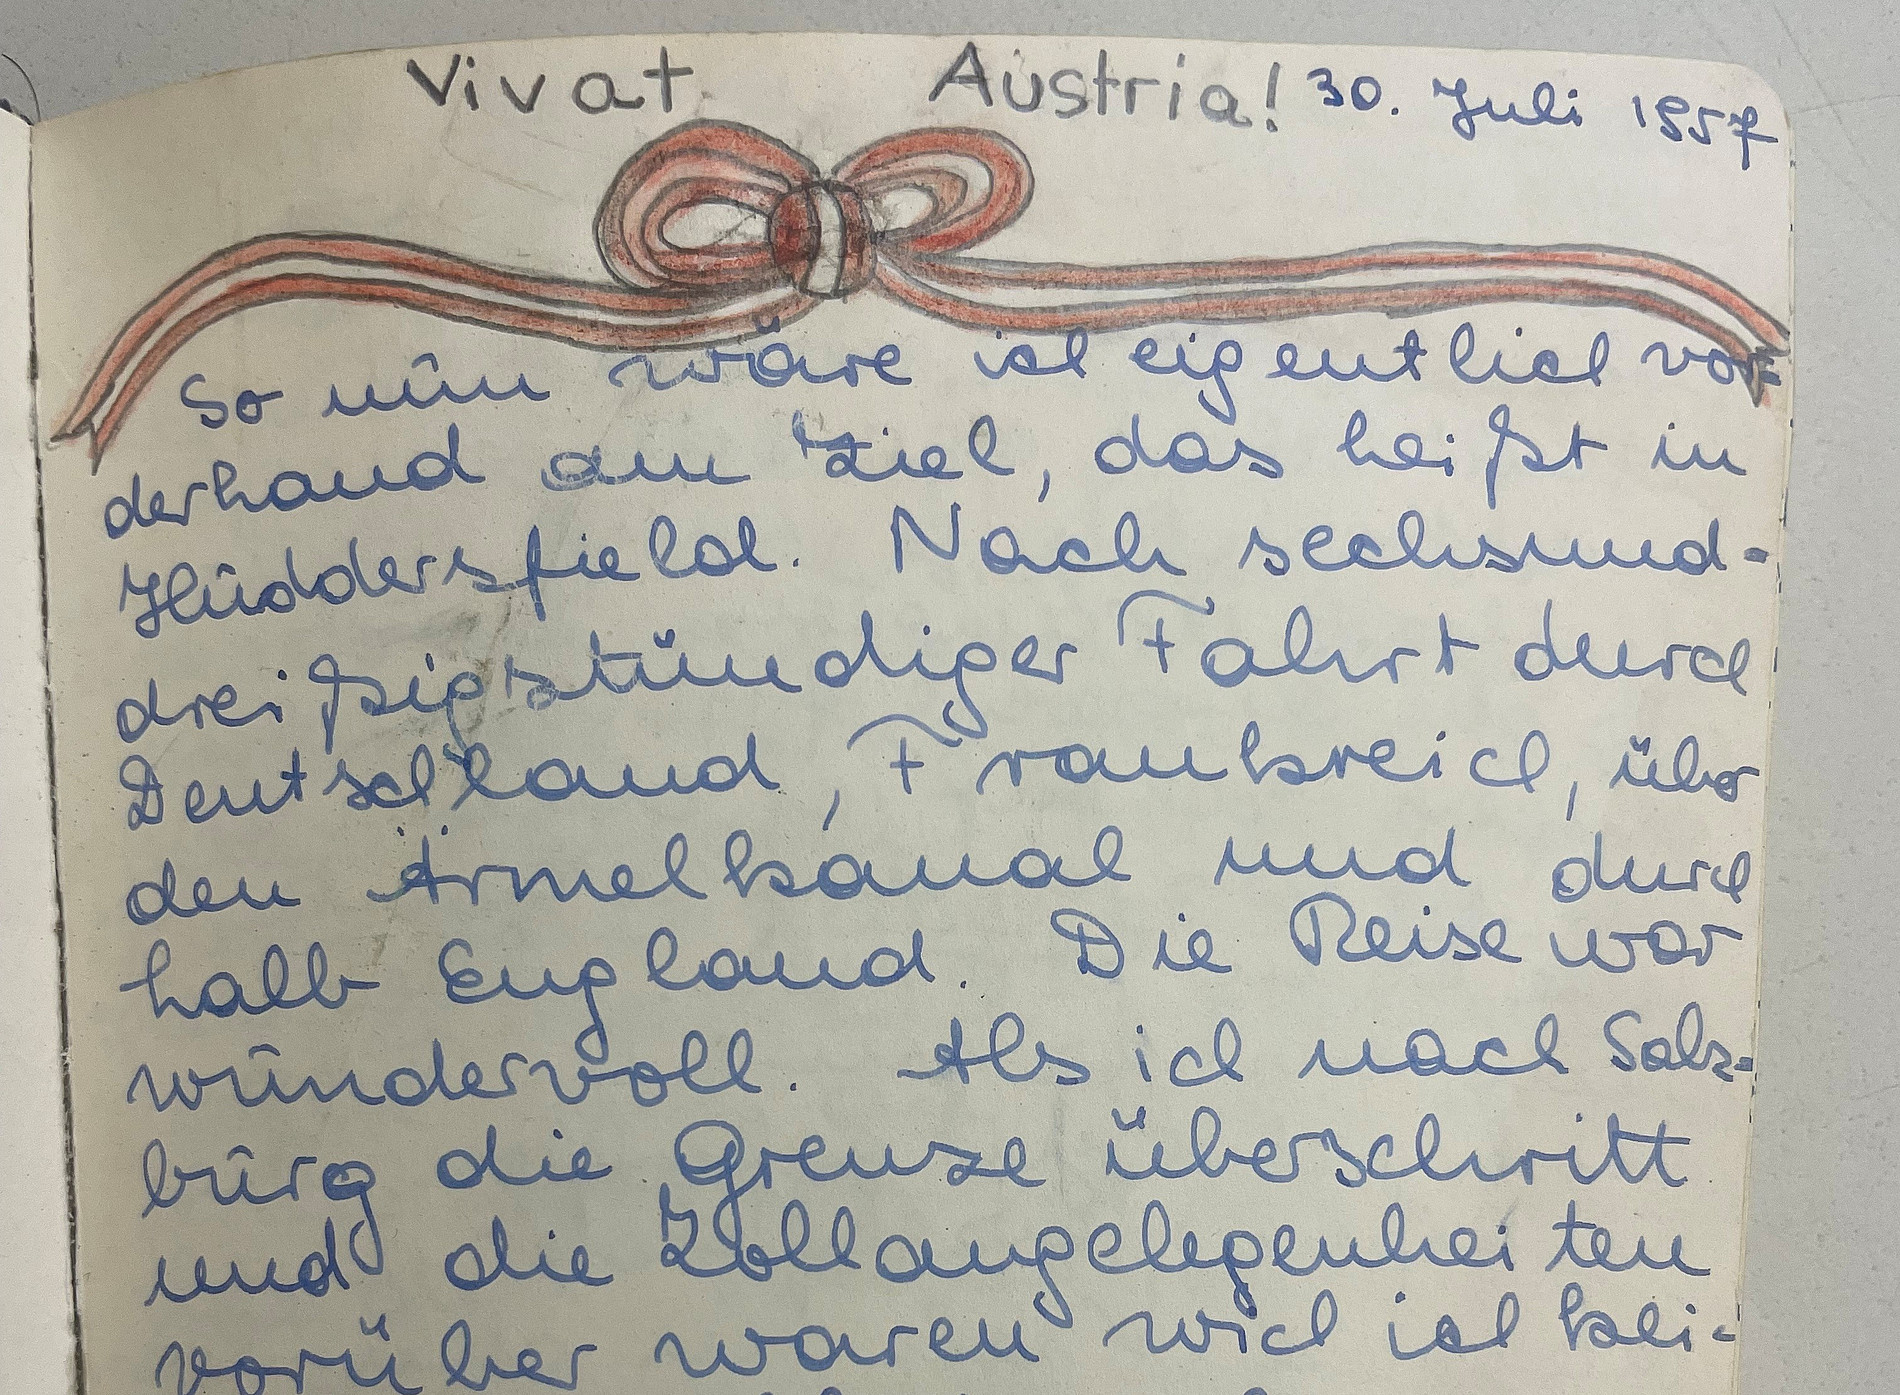 Vivat Austria! 30. Juli 1957
So nun wäre ich eigentlich vor=
derhand am Ziel, das heißt in
Huddersfield. Nach sechsund-
dreißigstündiger Fahrt durch
Deutschland, Frankreich, über
den Ärmelkanal und durch
halb England. Die Reise war
wundervoll. Als ich nach Salz=
burg die Grenze überschritt
und die Zollangelegenheiten
vorüber waren wich ich kei-